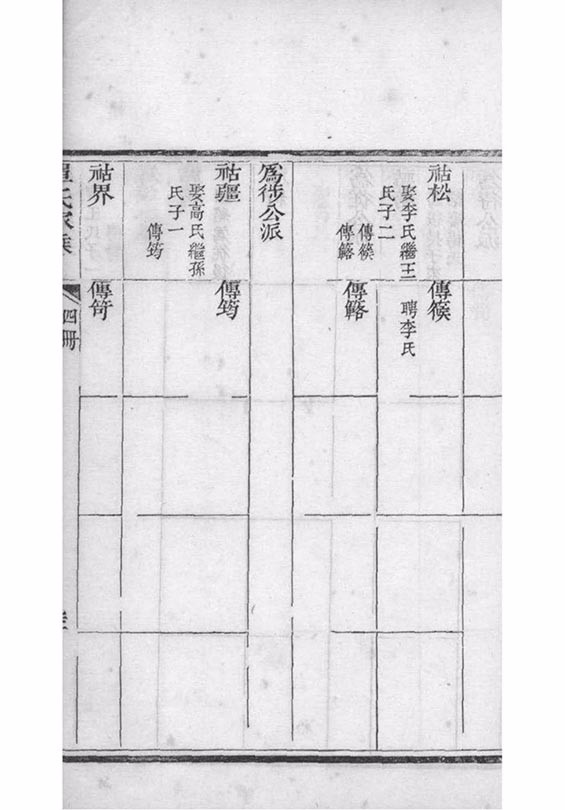 祜松
娶李氏繼王
氏子二
傳篌
傳簬
傳篌
聘李氏
傳簬
爲徏公派
祜疆
娶高氏繼孫
氏子一
傳筠
傳筠
祜界
傳
氏家
四冊